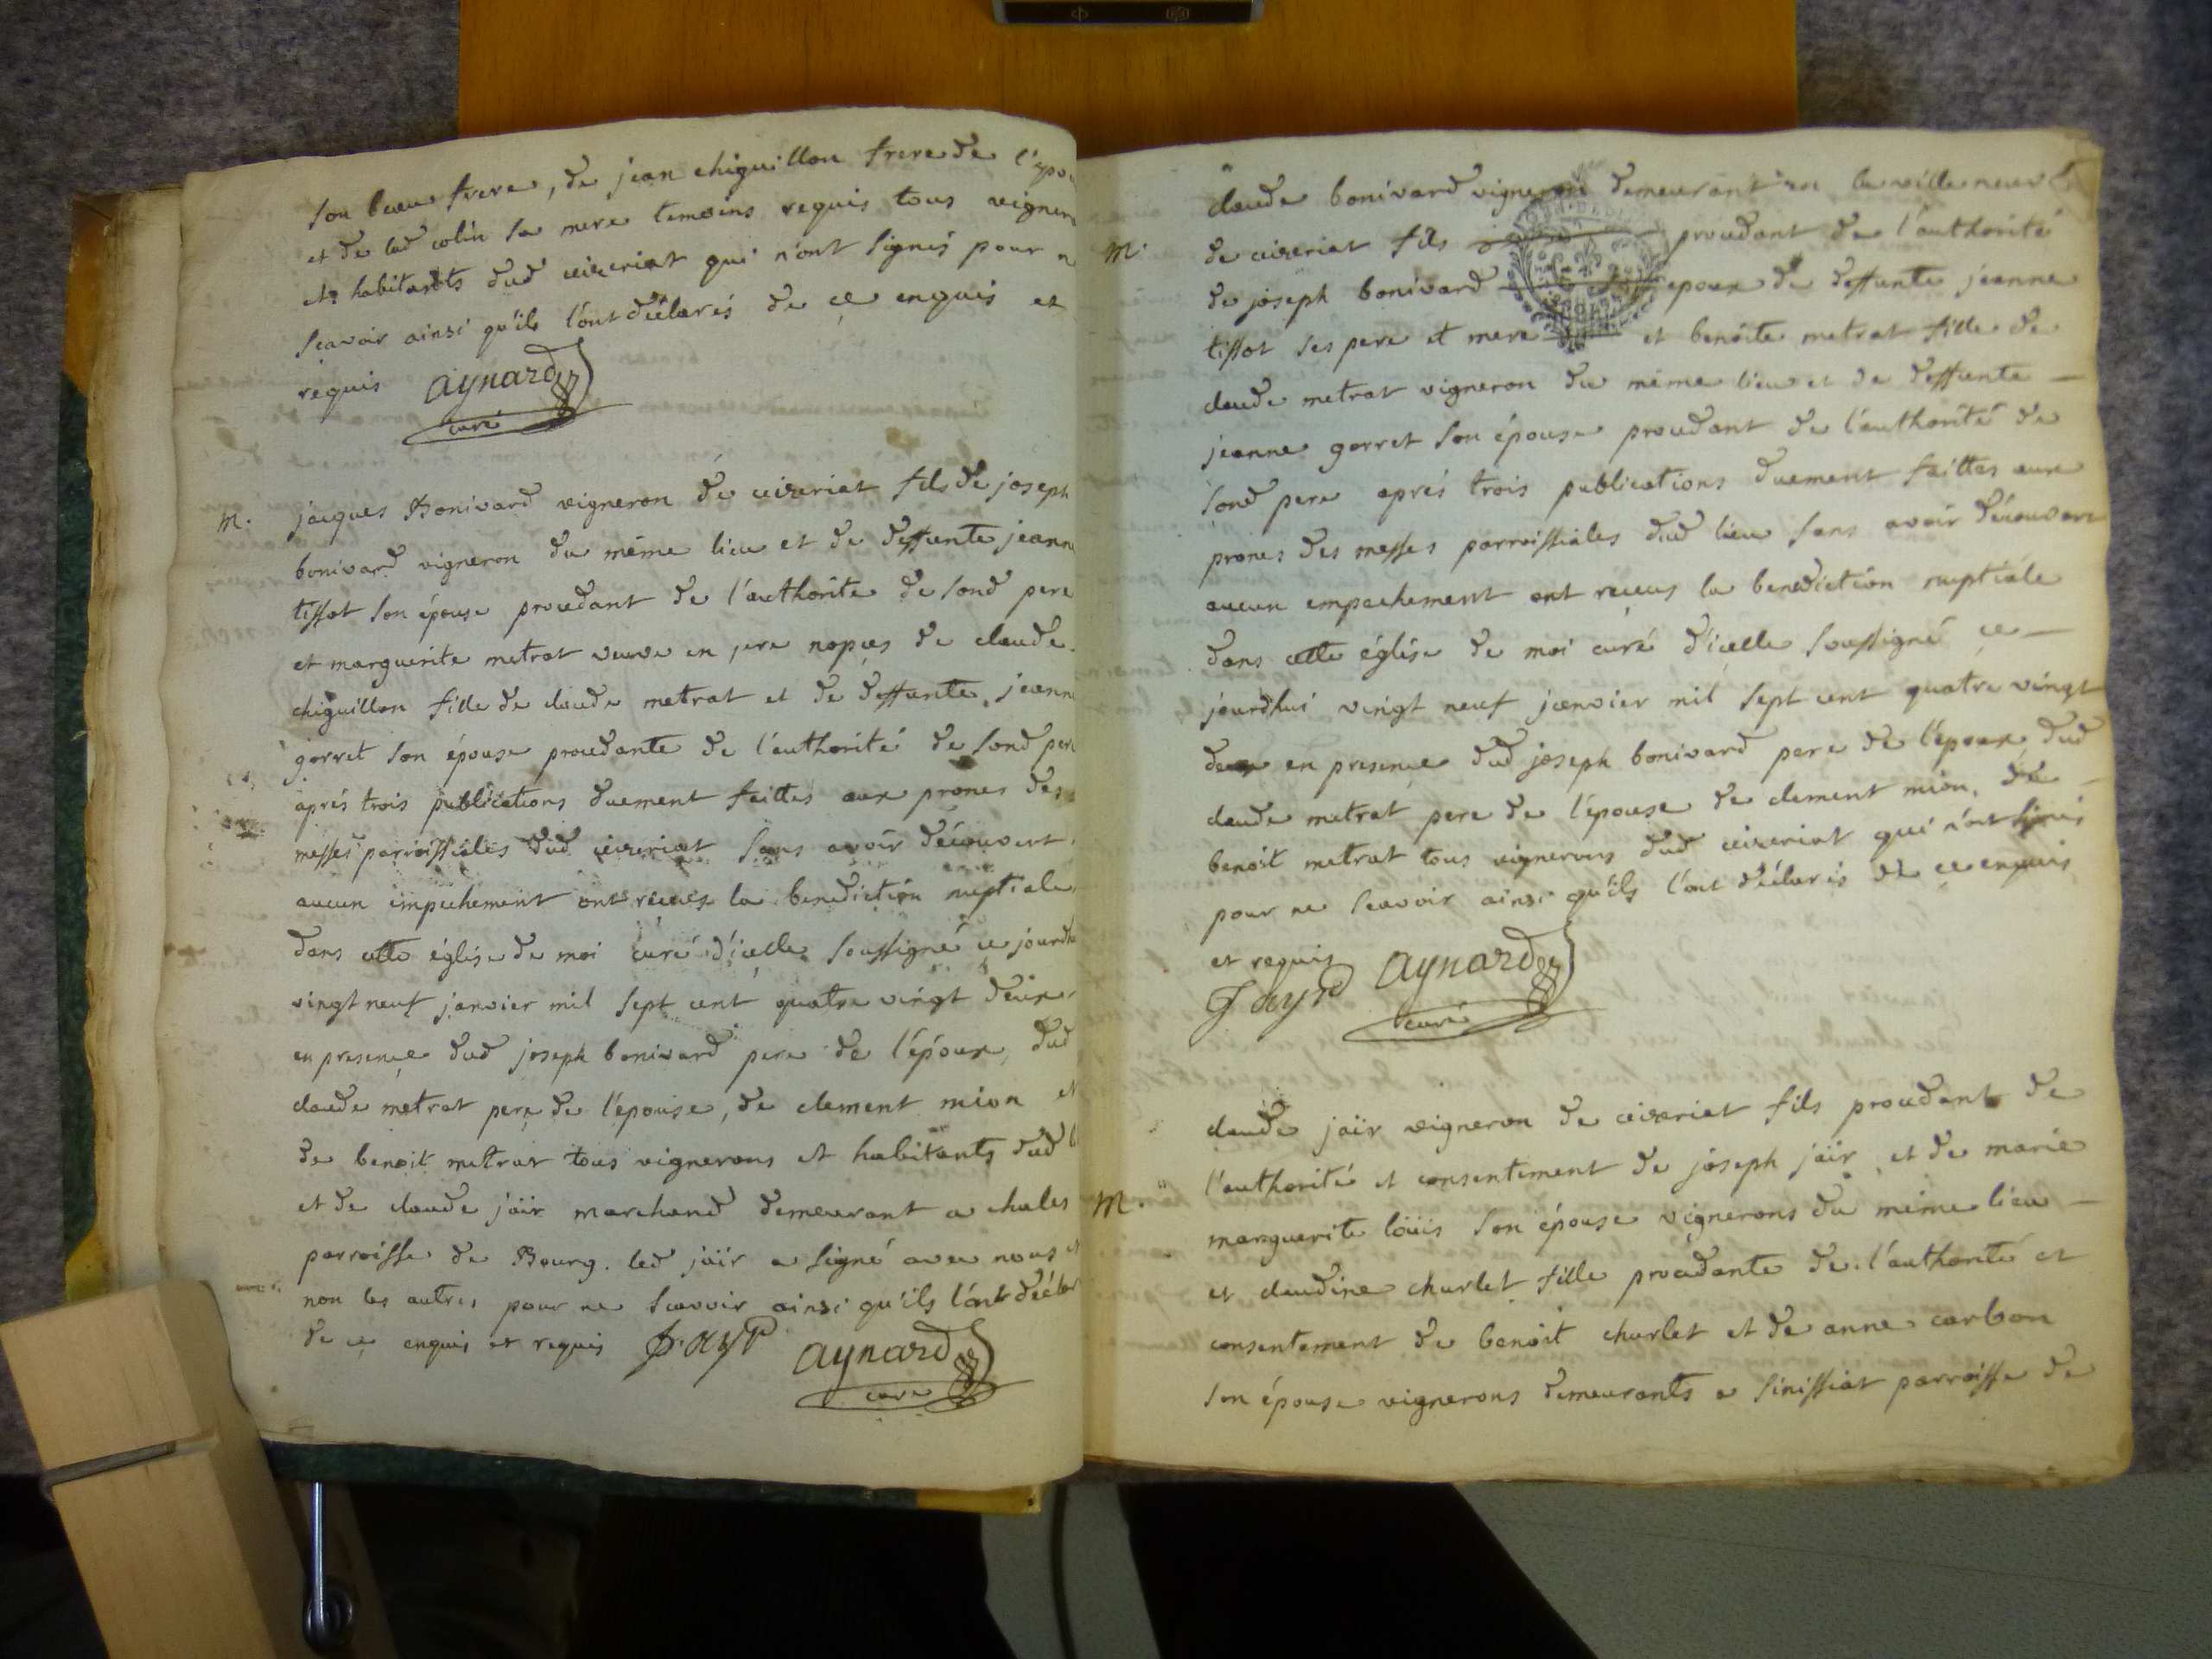 son beau frere, de jean chiguillon frere de l'epou
et de lad colin sa mere temoins requis tous vigner
et habitants dud ceizeriat qui n'ont signés pour n
scavoir ainsi qu'ils l'ont déclarés de ce enquis et
requis aynard
curé
M. jacques Bonivard vigneron de ceizeriat fils de joseph
bonivard vigneron du même lieu et de deffunte jeann
tissot son épouse procedant de l'authorite de sond pere
et marguerite metrat veuve en 1ere nopces de claude
chiguillon fille de claude metrat et de deffunte jeann
gorret son épouse procedante de l'authorité de sond pere
aprés trois publications duement faittes aux prones des
messes parroissiales dud ceizeriat sans avoir découvert
aucun impechement ont recues la benediction nuptiale
dans cette église de moi curé d'icelle soussigné ce jourdh
vingt neuf janvier mil sept cent quatre vingt deux
en presence dud joseph bonivard pere de l'époux, dud
claude metrat pere de l'epouse, de clement mion et
de benoit metrat tous vignerons et habitants dud l
et de claude jäir marchand demeurant a chales
parroisse de Bourg. led jäir a signé avec nous et
non les autres pour ne scavoir ainsi qu'ils l'ont déclar
de ce enquis et requis J. ayr aynard
curé
claude bonivard vigneron demeurant en la ville neuve
M. de ceizeriat fils procedant de l'authorité
de joseph bonivard epoux de deffunte jeanne
tissot ses pere et mere et benoite metrat fille de
claude metrat vigneron du même lieu et de deffunte
jeanne gorret son épouse procedant de l'authorité de
sond pere aprés trois publications duement faittes aux
prones des messes parroissiales dud lieu sans avoir découvert
aucun empechement ont recus la benediction nuptiale
dans cette église de moi curé d'icelle soussigné ce
jourdhui vingt neuf janvier mil sept cent quatre vingt
deux en presence dud joseph bonivard pere de l'époux, dud
claude metrat pere de l'épouse de clement mion, de
benoit metrat tous vignerons dud ceizeriat qui n'ont signés
pour ne scavoir ainsi qu'ils l'ont déclarés de ce enquis
et requis aynard
J ayr curé
claude jäir vigneron de ceizeriat fils procedant de
l'authorité et consentement de joseph jäir et de marie
M. marguerite loüis son épouse vignerons du même lieu
et claudine churlet fille procedante de l'authorité et
consentement de benoit churlet et de anne carbon
son épouse vignerons demeurants a sinissiat parroisse de